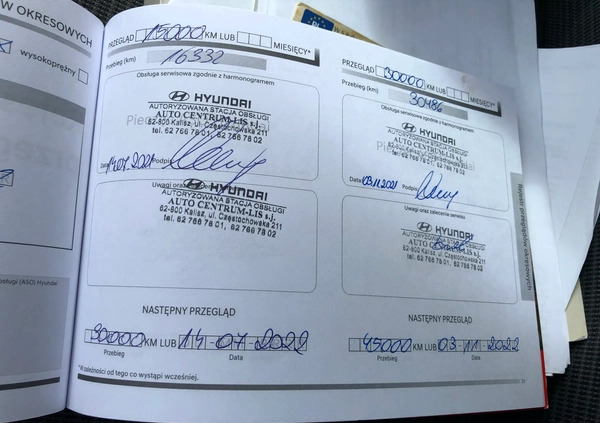 W OKRESOWYCH
wysokoprężny
bsługi (ASO) Hyundai
PRZEGLĄD 15000 KM LUB MIESIĘCY*
Przebieg (km) 16332
Obsługa serwisowa zgodnie z harmonogramem
HYUNDAI
AUTORYZOWANA STACJA OBSŁUGI
AUTO CENTRUM-LIS s.j.
62-800 Kalisz, ul. Częstochowska 211
tel. 62 766 78 01, 62 766 78 02
Data 14.07.2021 Podpis
Uwagi oraz
HYUNDAI
AUTORYZOWANA STACJA OBSŁUGI
AUTO CENTRUM-LIS s.j.
62-800 Kalisz, ul. Częstochowska 211
tel. 62 766 78 01, 62 766 78 02
NASTĘPNY PRZEGLĄD
30000 KM LUB 14-07-2022
Przebieg Data
*W zależności od tego co wystąpi wcześniej.
PRZEGLĄD 30000 KM LUB MIESIĘCY*
Przebieg (km) 30486
Obsługa serwisowa zgodnie z harmonogramem
HYUNDAI
AUTORYZOWANA STACJA OBSŁUGI
AUTO CENTRUM-LIS s.j.
62-800 Kalisz, ul. Częstochowska 211
tel. 62 766 78 01, 62 766 78 02
Data 03.11.2021 Podpis
Uwagi oraz zalecenia serwisu
HYUNDAI
AUTORYZOWANA STACJA OBSŁUGI
AUTO CENTRUM-LIS s.j.
62-800 Kalisz, ul. Częstochowska 211
tel. 62 766 78 01, 62 766 78 02
NASTĘPNY PRZEGLĄD
45000 KM LUB 03-11-2022
Przebieg Data
Rejestr przeglądów okresowych
PL